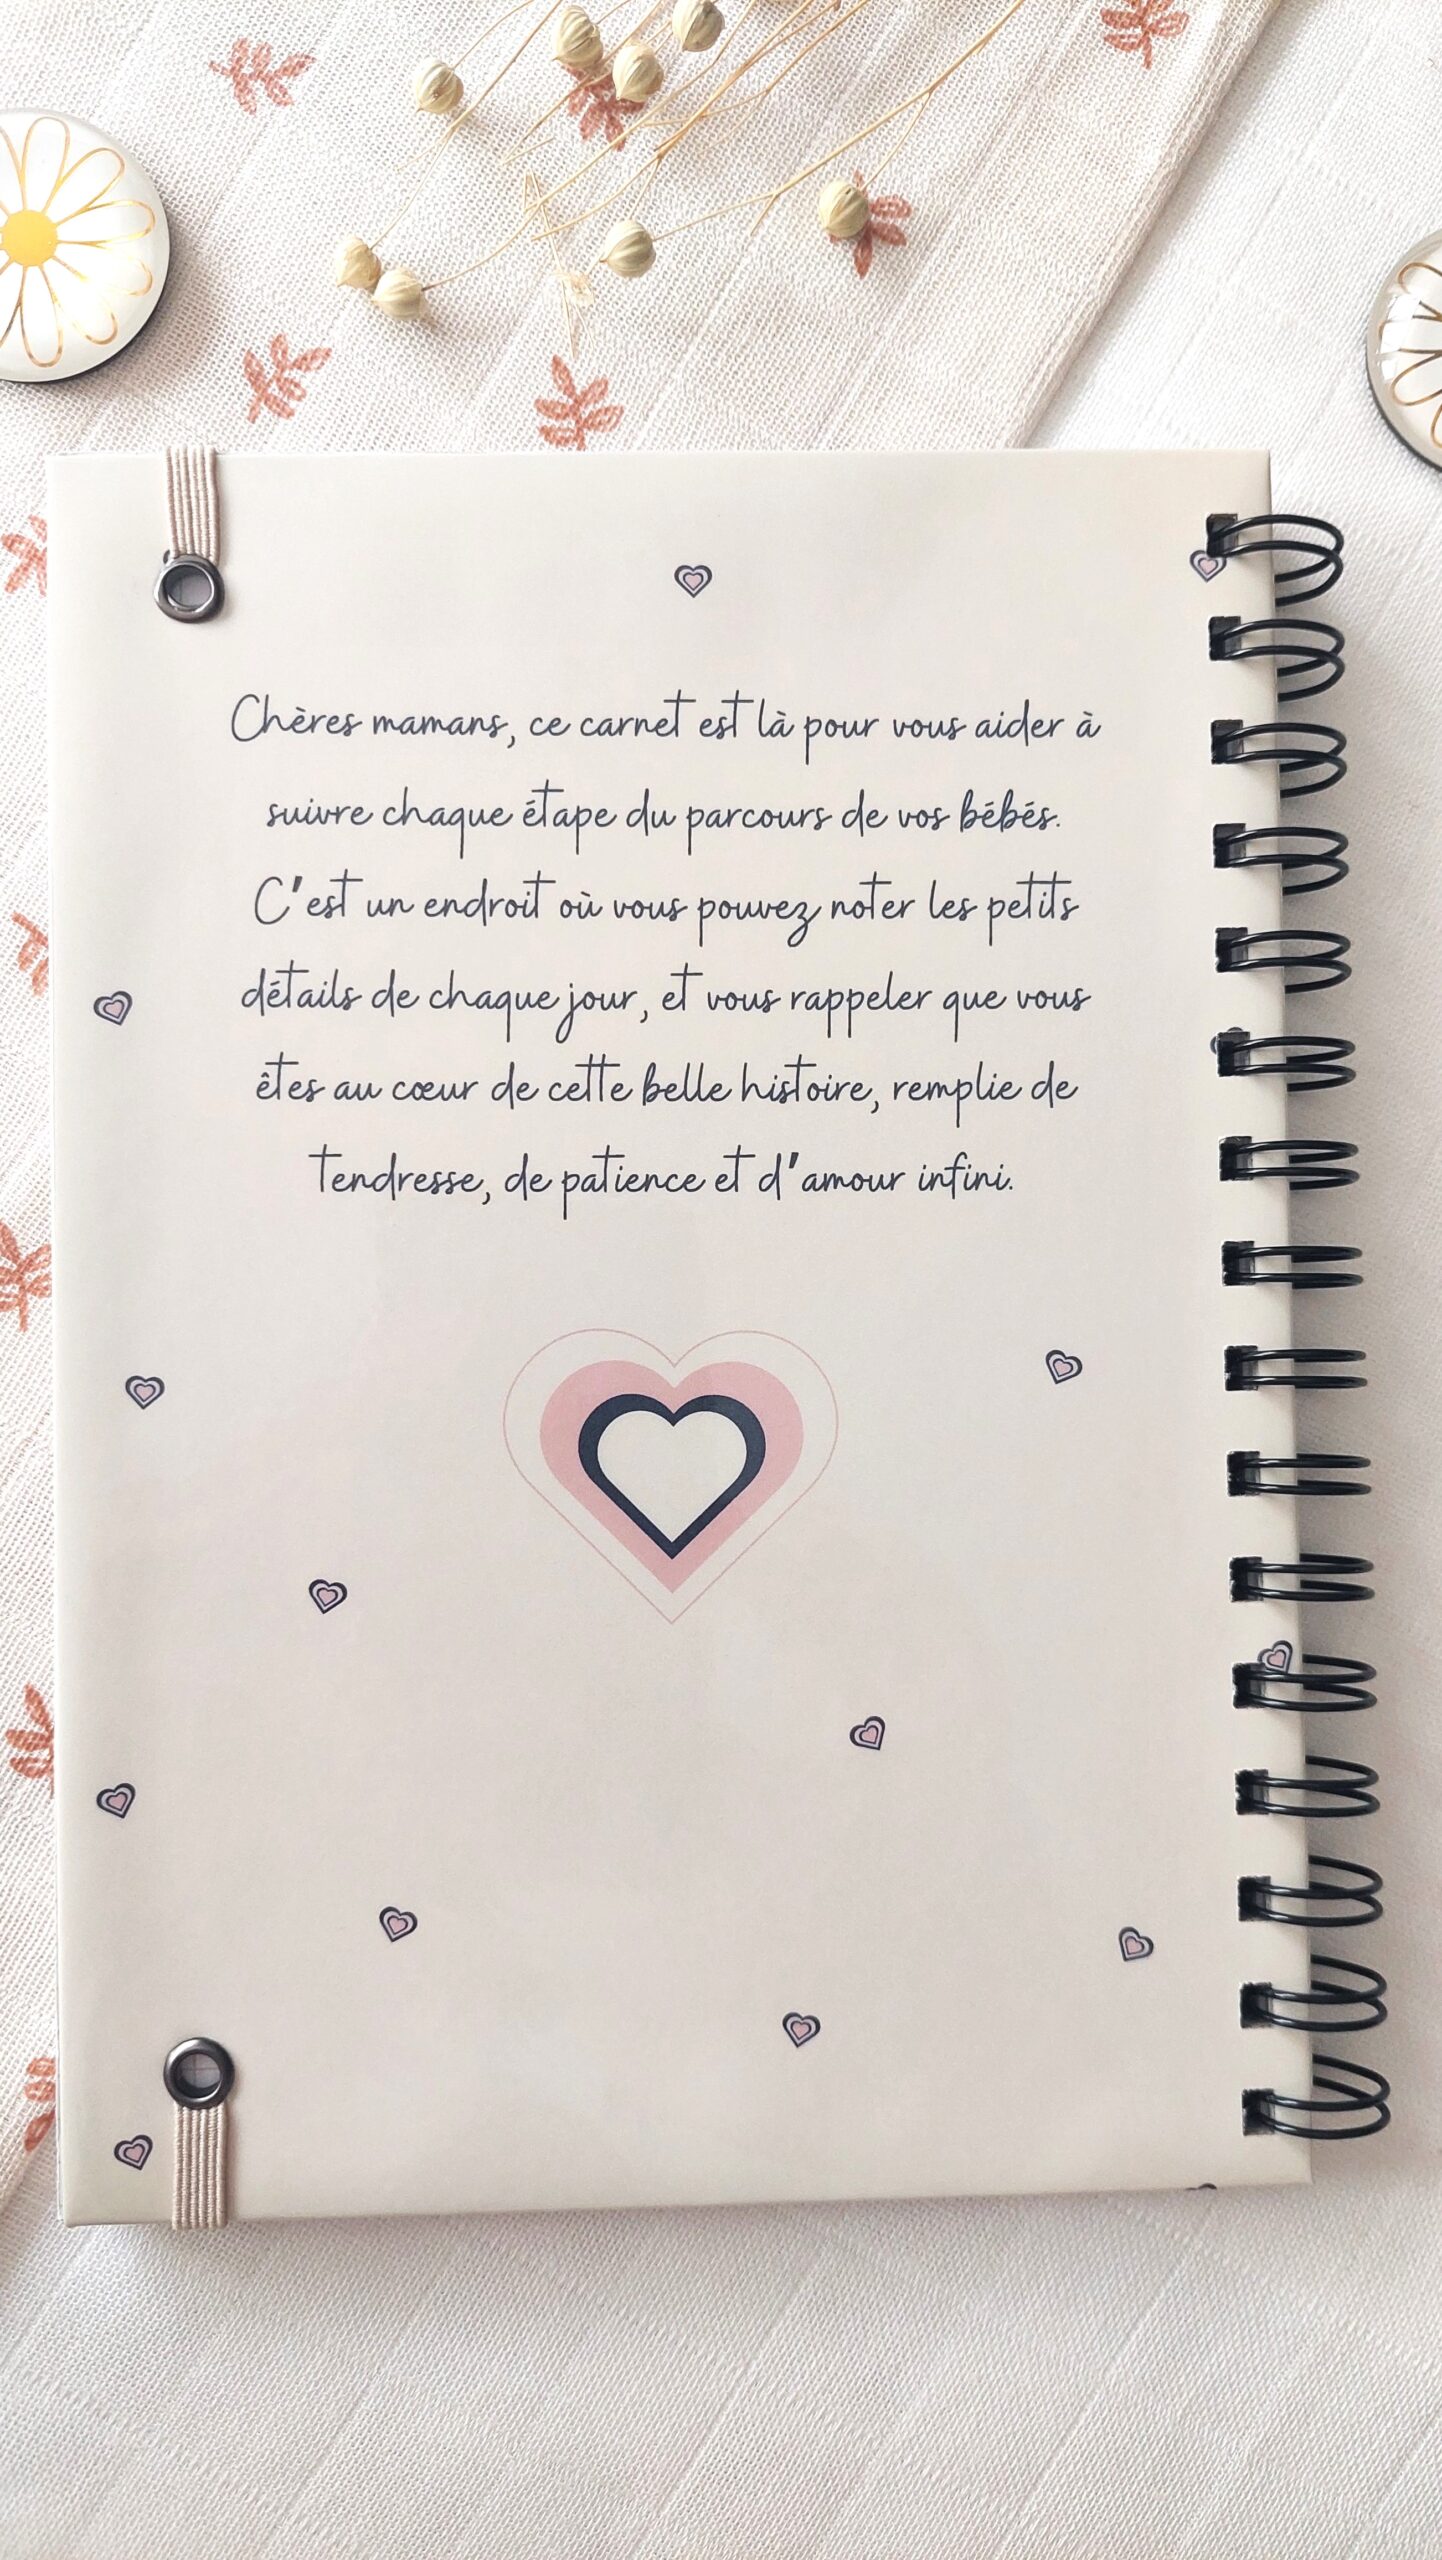 Chères mamans, ce carnet est là pour vous aider à
suivre chaque étape du parcours de vos bébés.
C'est un endroit où vous pouvez noter les petits
détails de chaque jour, et vous rappeler que vous
êtes au cœur de cette belle histoire, remplie de
tendresse, de patience et d'amour infini.